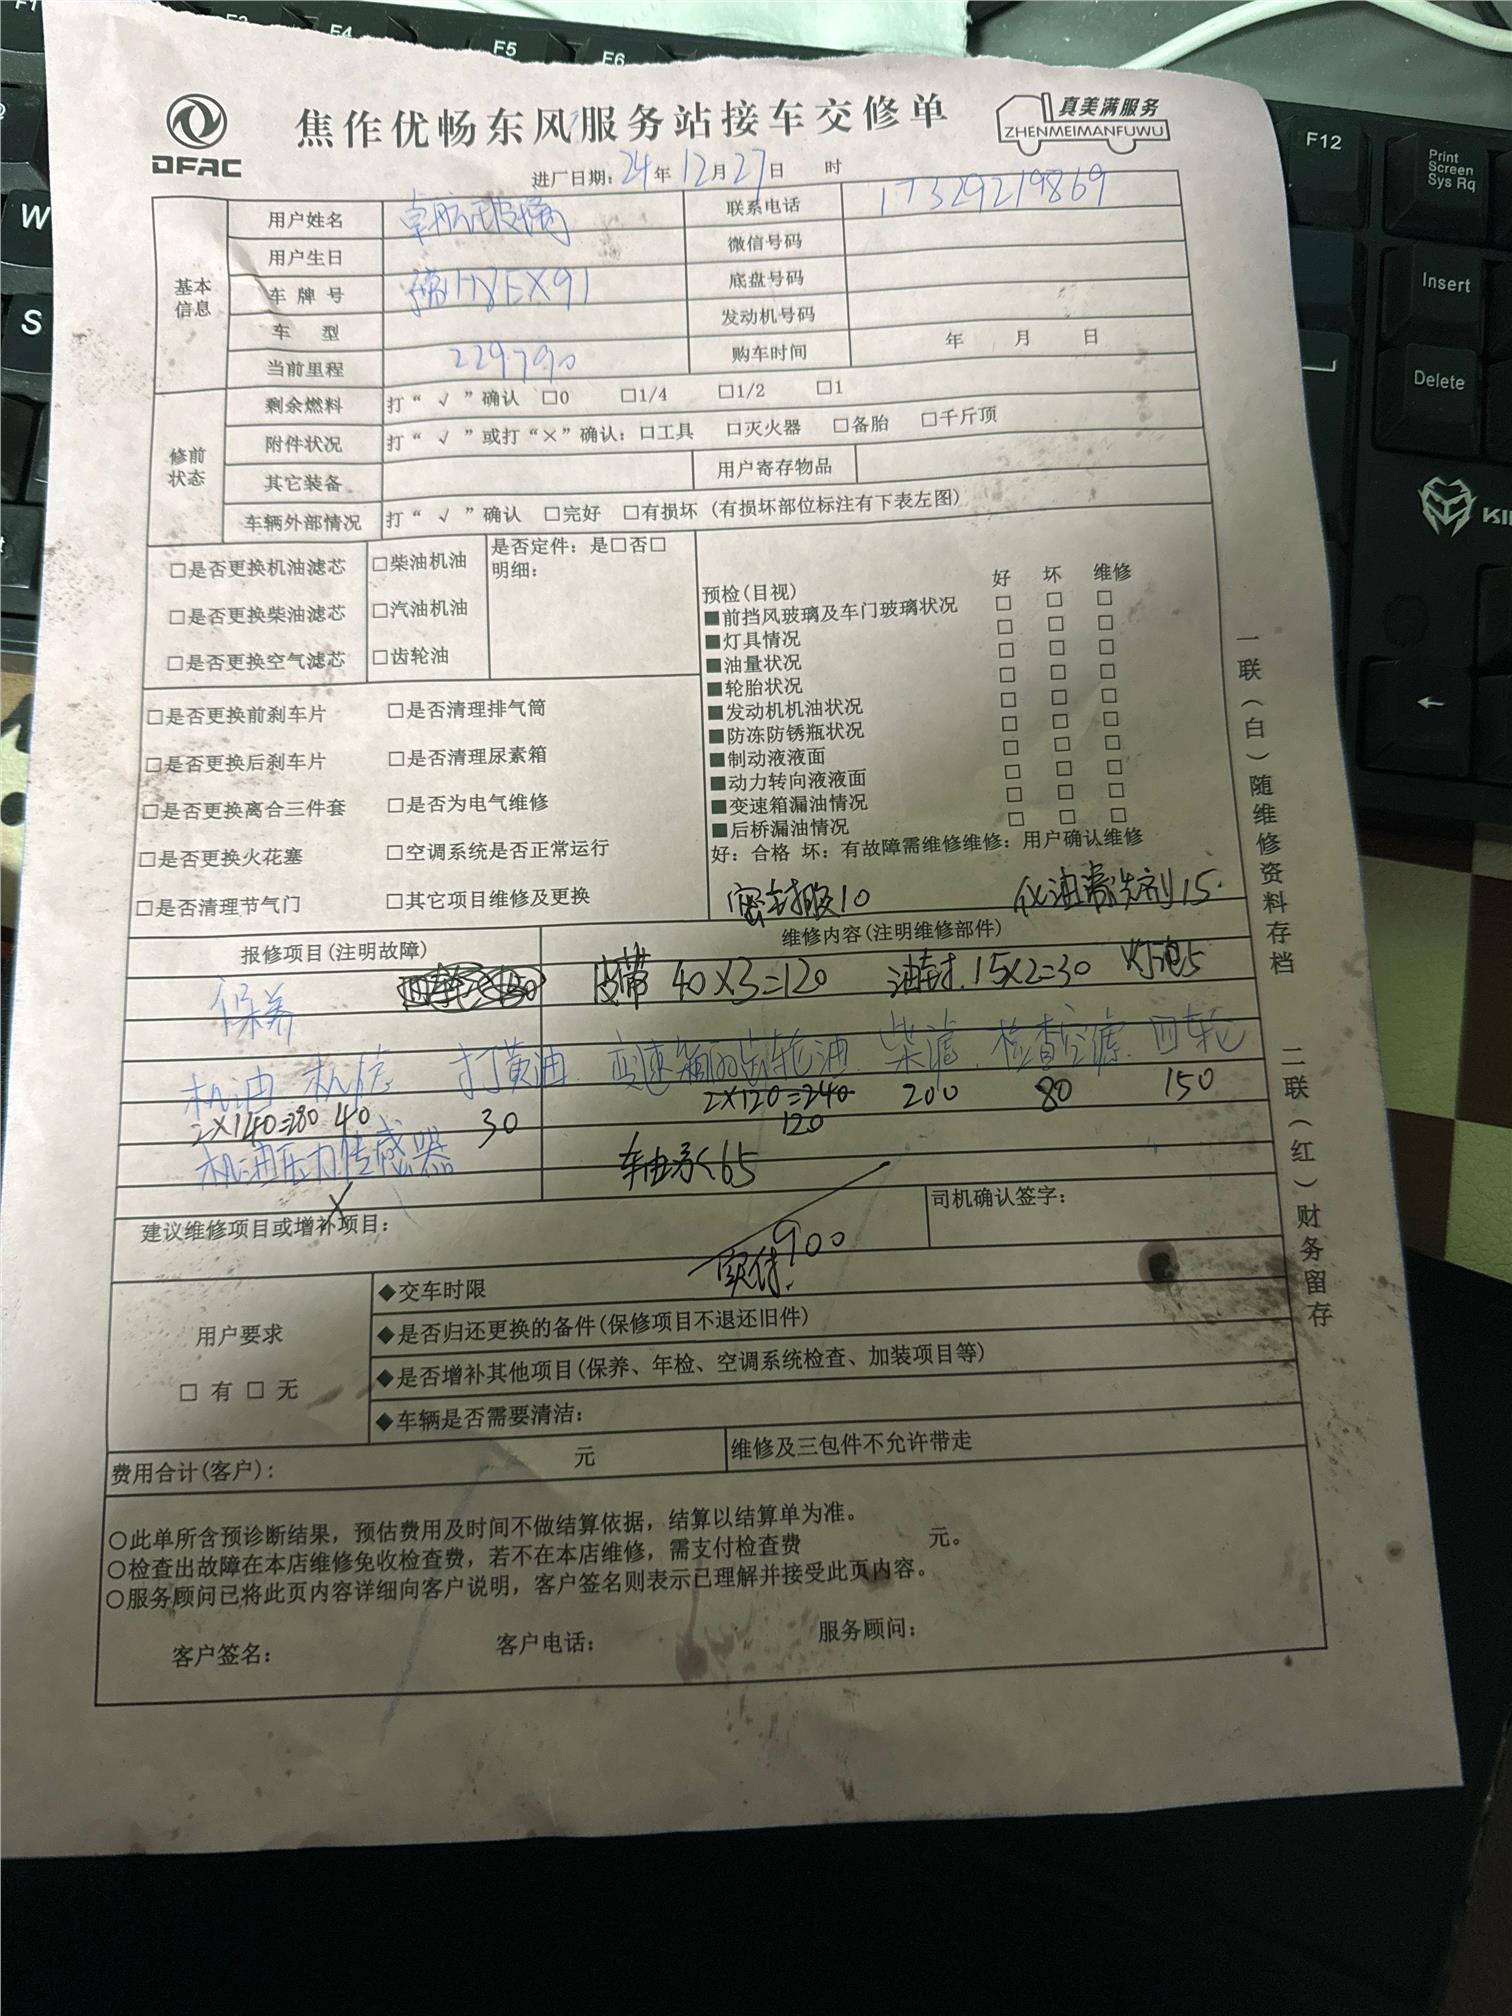 DFAC
焦作优畅东风服务站接车交修单
真美满服务
ZHENMEIMANFUWU
进厂日期：24年12月27日 时
基本信息
用户姓名 卓航玻璃 联系电话 17329219869
用户生日 微信号码
车牌号 豫H8EX91 底盘号码
车型 发动机号码
当前里程 229790 购车时间 年 月 日
修前状态
剩余燃料 打“√”确认 □0 □1/4 □1/2 □1
附件状况 打“√”或打“×”确认：□工具 □灭火器 □备胎 □千斤顶
其它装备 用户寄存物品
车辆外部情况 打“√”确认 □完好 □有损坏 (有损坏部位标注有下表左图)
□是否更换机油滤芯 □柴油机油 是否定件：是□否□
明细：
□是否更换柴油滤芯 □汽油机油
□是否更换空气滤芯 □齿轮油
预检(目视) 好 坏 维修
■前挡风玻璃及车门玻璃状况 □ □ □
■灯具情况 □ □ □
■油量状况 □ □ □
■轮胎状况 □ □ □
■发动机机油状况 □ □ □
■防冻防锈瓶状况 □ □ □
■制动液液面 □ □ □
■动力转向液液面 □ □ □
■变速箱漏油情况 □ □ □
■后桥漏油情况 □ □ □
好：合格 坏：有故障需维修维修：用户确认维修
□是否更换前刹车片 □是否清理排气筒
□是否更换后刹车片 □是否清理尿素箱
□是否更换离合三件套 □是否为电气维修
□是否更换火花塞 □空调系统是否正常运行
□是否清理节气门 □其它项目维修及更换
密封胶10 化油清洗剂15
报修项目(注明故障) 维修内容(注明维修部件)
保养 皮带 40×3=120 油封 15×2=30 灯泡5
机油 机滤 打黄油 变速箱 齿轮油 柴滤 检查空滤 四轮
2×140=280 40 30 2×120=240 200 80 150
120
机油压力传感器 轴承 65
×
建议维修项目或增补项目：
司机确认签字：
900
实付
用户要求
□有□无
◆交车时限
◆是否归还更换的备件(保修项目不退还旧件)
◆是否增补其他项目(保养、年检、空调系统检查、加装项目等)
◆车辆是否需要清洁：
费用合计(客户)： 元 维修及三包件不允许带走
○此单所含预诊断结果，预估费用及时间不做结算依据，结算以结算单为准。
○检查出故障在本店维修免收检查费，若不在本店维修，需支付检查费 元。
○服务顾问已将此页内容详细向客户说明，客户签名则表示已理解并接受此页内容。
客户签名： 客户电话： 服务顾问：
一联(白)随维修资料存档 二联(红)财务留存
F4
F5
F6
F12
Print Screen Sys Rq
W
S
Insert
Delete